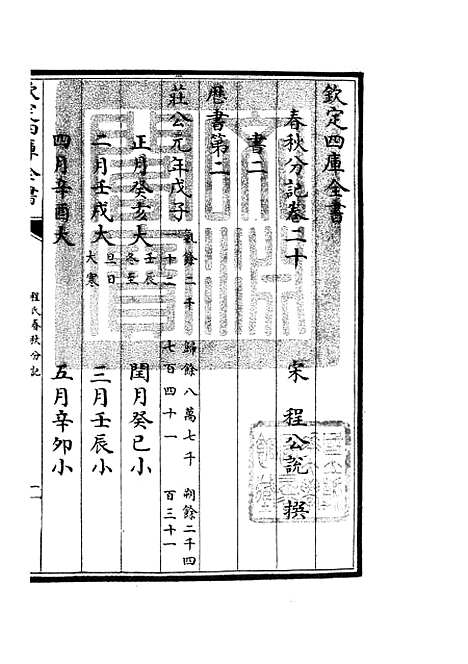 欽定四庫全書
春秋分記卷二十
宋 程公說 撰
書二
厯書第二
莊公元年戊子 氣餘二千一十七 歸餘八萬七千七百四十一 朔餘二千四百三十一
正月癸亥大 壬辰冬至 閏月癸巳小
二月壬戌大 旦日大寒 三月壬辰小
四月辛酉大 五月辛卯小
欽定四庫全書
程氏春秋分記